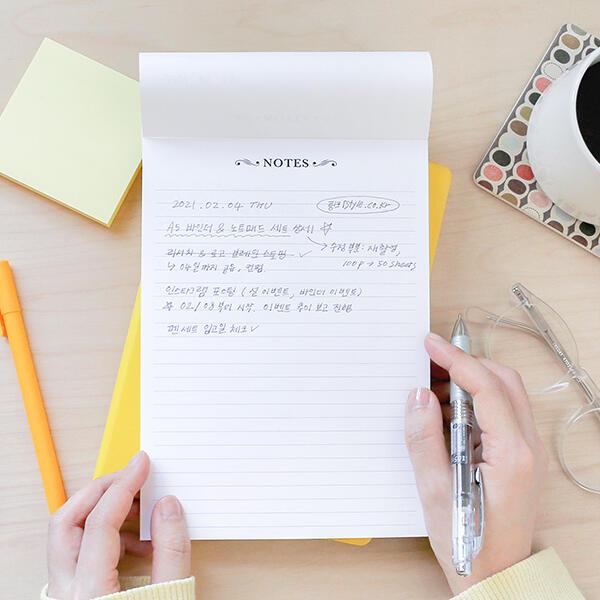 NOTES
2021. 02. 04 THU
1Style.co.kr
A5 바인더 & 노트패드 세트 상세!
수정 부분 : 재촬영,
100p → 50 sheets
리서치 & 로고
04일까지 공유, 컨펌
인스타그램 포스팅 (설 이벤트, 바인더 이벤트)
02/08부터 시작. 이벤트 추이 보고 진행
펜 세트 입고일 체크 ✓